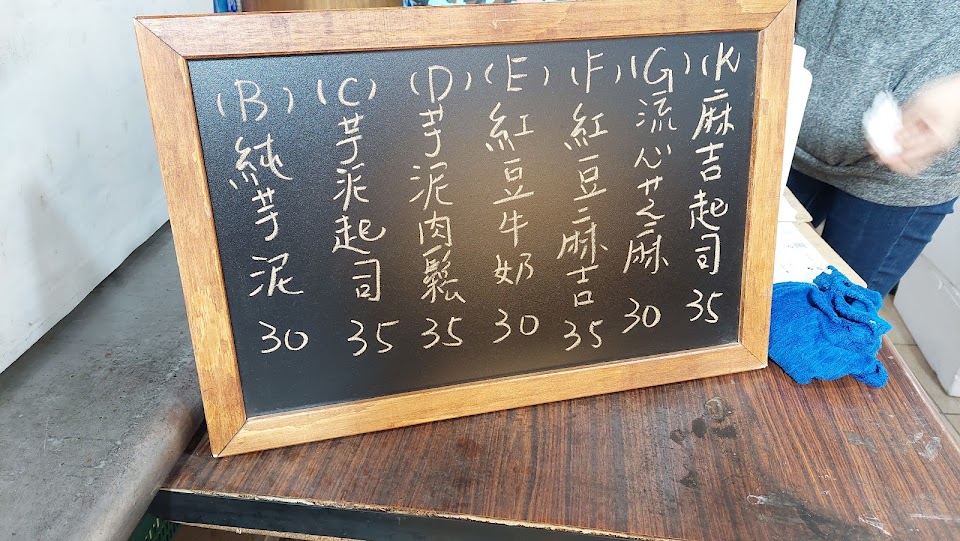 (B) 純芋泥 30
(C) 芋泥起司 35
(D) 芋泥肉鬆 35
(E) 紅豆牛奶 30
(F) 紅豆麻吉 35
(G) 流心芝麻 30
(K 麻吉起司 35